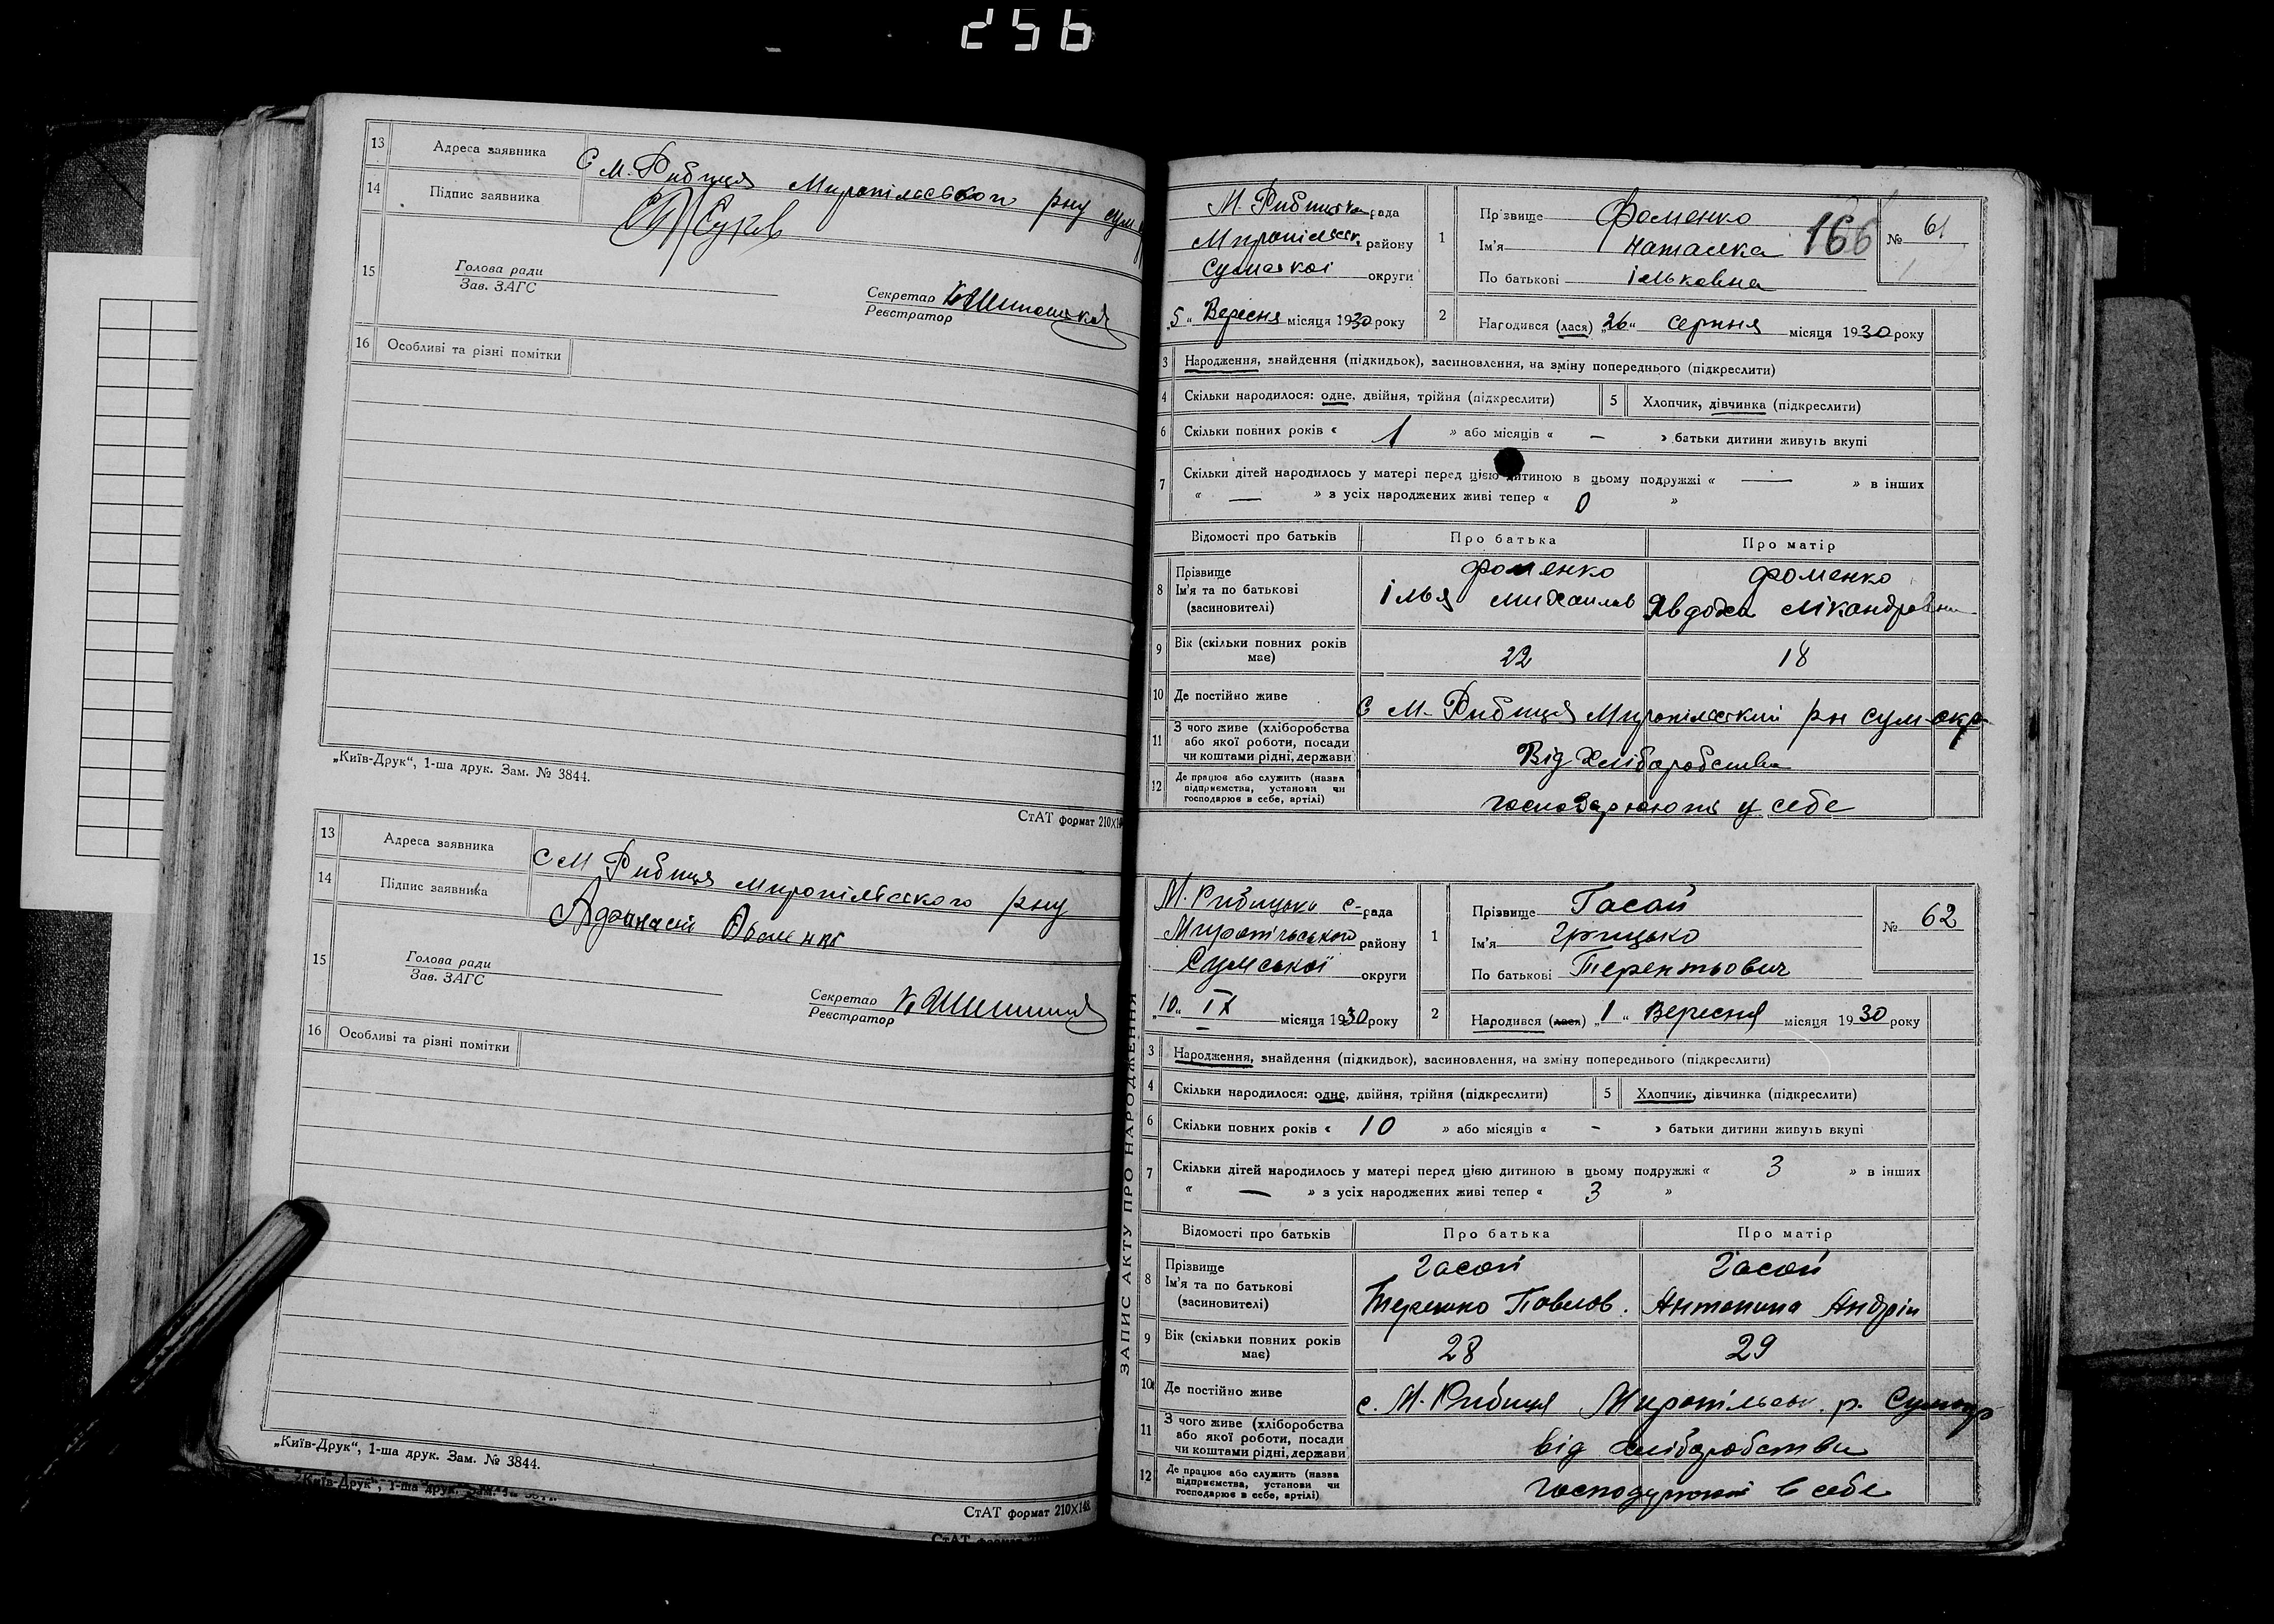 256
13 Адреса заявника С М. Рибиця Миропільського рну сум
14 Підпис заявника
15 Голова ради
Зав. ЗАГС
Секретар
Реєстратор
16 Особливі та різні помітки
„Київ-Друк“, 1-ша друк. Зам. № 3844.
СтАТ формат 210×14
13 Адреса заявника С М Рибиця Миропільського рну
14 Підпис заявника Афанасій Фоменко
15 Голова ради
Зав. ЗАГС
Секретар
Реєстратор
16 Особливі та різні помітки
„Київ-Друк“, 1-ша друк. Зам. № 3844.
СтАТ формат 210×148
„Київ-Друк“, 1-ша друк.
М. Рибицька рада
Миропільськ. району
Сумської округи
„5“ Вересня місяця 1930 року
1 Прізвище Фоменко
Ім'я Наталка
По батькові Ільковна
166
№ 61
2 Народився (лася) „26“ серпня місяця 1930 року
3 Народження, знайдення (підкидьок), засиновлення, на зміну попереднього (підкреслити)
4 Скільки народилося: одне, двійня, трійня (підкреслити) 5 Хлопчик, дівчинка (підкреслити)
6 Скільки повних років « 1 » або місяців « – » батьки дитини живуть вкупі
7 Скільки дітей народилось у матері перед цією дитиною в цьому подружжі « — » в інших
« — » з усіх народжених живі тепер « 0 »
Відомості про батьків Про батька Про матір
8 Прізвище Фоменко Фоменко
Ім'я та по батькові Ілья Михайлов Явдоха Нікандровна
(засиновителі)
9 Вік (скільки повних років має) 22 18
10 Де постійно живе С М. Рибиця Миропільський рн сум-окр
11 З чого живе (хліборобства або якої роботи, посади чи коштами рідні, держави) Від Хліборобства
12 Де працює або служить (назва підприємства, установи чи господарює в себе, артілі) господарюють у себе
ЗАПИС АКТУ ПРО НАРОДЖЕННЯ
М. Рибицька с- рада
Миропільського району
Сумської округи
„10“ IX місяця 1930 року
1 Прізвище Гасай
Ім'я Грицько
По батькові Терентьович
№ 62
2 Народився (лася) „1“ Вересня місяця 1930 року
3 Народження, знайдення (підкидьок), засиновлення, на зміну попереднього (підкреслити)
4 Скільки народилося: одне, двійня, трійня (підкреслити) 5 Хлопчик, дівчинка (підкреслити)
6 Скільки повних років « 10 » або місяців « - » батьки дитини живуть вкупі
7 Скільки дітей народилось у матері перед цією дитиною в цьому подружжі « 3 » в інших
« — » з усіх народжених живі тепер « 3 »
Відомості про батьків Про батька Про матір
8 Прізвище Гасай Гасай
Ім'я та по батькові Терешко Павлов. Антонина Андрій
(засиновителі)
9 Вік (скільки повних років має) 28 29
10 Де постійно живе с. М. Рибиця Миропільськ. р. Сумокр
11 З чого живе (хліборобства або якої роботи, посади чи коштами рідні, держави) від хліборобства
12 Де працює або служить (назва підприємства, установи чи господарює в себе, артілі) господарюють в себе